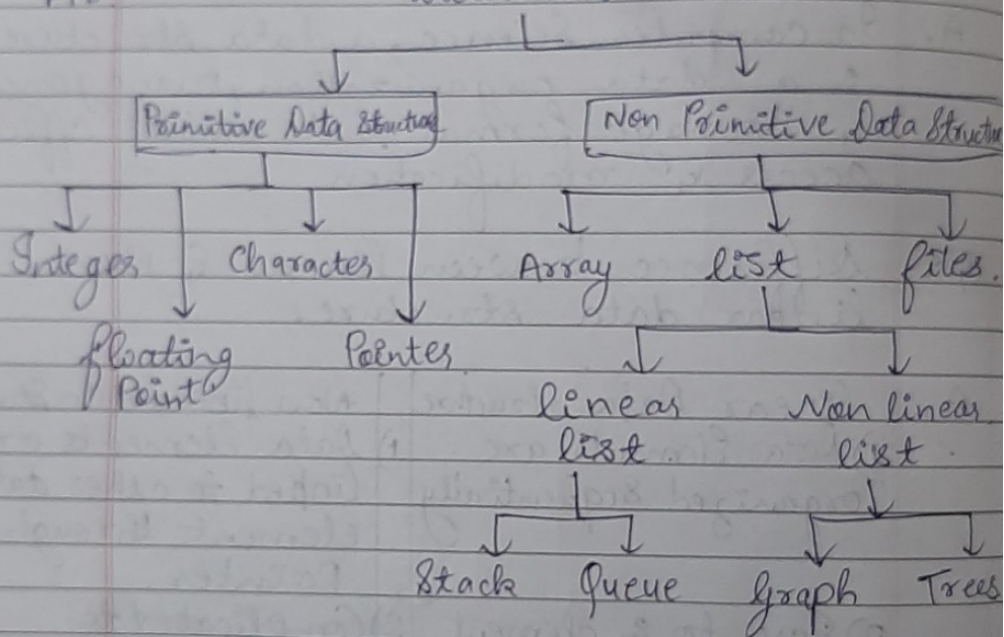 Primitive Data Structure
Non Primitive Data Structu
Integer
Character
Array
list
files.
floating
Point
Pointer
linear
list
Non linear
list
Stack
Queue
Graph
Trees